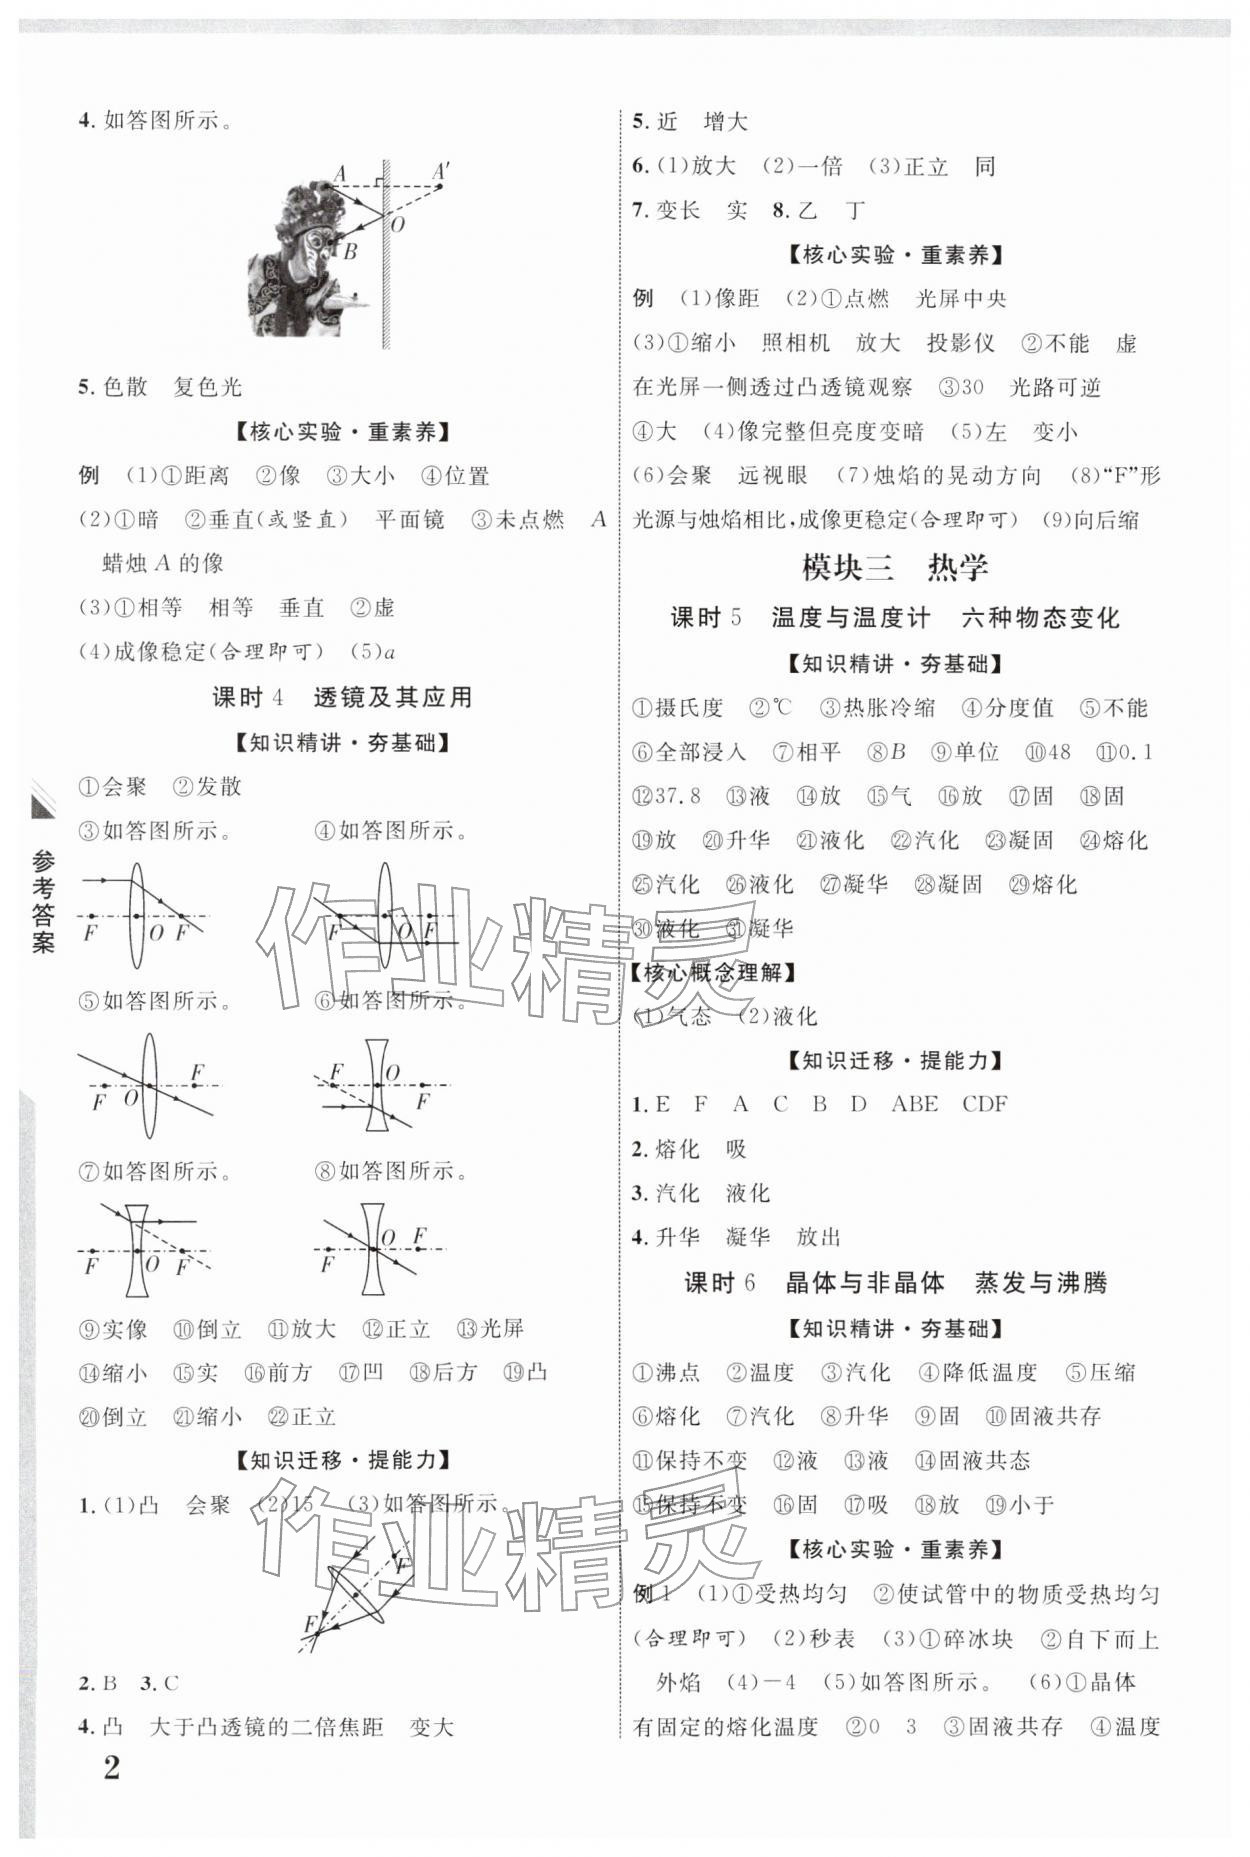 4. 如答图所示。
A
A′
O
B
5. 色散　复色光
【核心实验·重素养】
例　(1)①距离　②像　③大小　④位置
(2)①暗　②垂直(或竖直)　平面镜　③未点燃　A
蜡烛 A 的像
(3)①相等　相等　垂直　②虚
(4)成像稳定(合理即可)　(5)a
课时 4　透镜及其应用
【知识精讲·夯基础】
①会聚　②发散
③如答图所示。　④如答图所示。
F　O　F　F　O　F
⑤如答图所示。　⑥如答图所示。
F　O　F　F　O　F
⑦如答图所示。　⑧如答图所示。
F　O　F　F　O　F
⑨实像　⑩倒立　⑪放大　⑫正立　⑬光屏
⑭缩小　⑮实　⑯前方　⑰凹　⑱后方　⑲凸
⑳倒立　㉑缩小　㉒正立
【知识迁移·提能力】
1. (1)凸　会聚　(2)15　(3)如答图所示。
F
F
2. B　3. C
4. 凸　大于凸透镜的二倍焦距　变大
2
参考答案
5. 近　增大
6. (1)放大　(2)一倍　(3)正立　同
7. 变长　实　8. 乙　丁
【核心实验·重素养】
例　(1)像距　(2)①点燃　光屏中央
(3)①缩小　照相机　放大　投影仪　②不能　虚
在光屏一侧透过凸透镜观察　③30　光路可逆
④大　(4)像完整但亮度变暗　(5)左　变小
(6)会聚　远视眼　(7)烛焰的晃动方向　(8)“F”形
光源与烛焰相比,成像更稳定(合理即可)　(9)向后缩
模块三　热学
课时 5　温度与温度计　六种物态变化
【知识精讲·夯基础】
①摄氏度　②℃　③热胀冷缩　④分度值　⑤不能
⑥全部浸入　⑦相平　⑧B　⑨单位　⑩48　⑪0.1
⑫37.8　⑬液　⑭放　⑮气　⑯放　⑰固　⑱固
⑲放　⑳升华　㉑液化　㉒汽化　㉓凝固　㉔熔化
㉕汽化　㉖液化　㉗凝华　㉘凝固　㉙熔化
㉚液化　㉛凝华
【核心概念理解】
(1)气态　(2)液化
【知识迁移·提能力】
1. E　F　A　C　B　D　ABE　CDF
2. 熔化　吸
3. 汽化　液化
4. 升华　凝华　放出
课时 6　晶体与非晶体　蒸发与沸腾
【知识精讲·夯基础】
①沸点　②温度　③汽化　④降低温度　⑤压缩
⑥熔化　⑦汽化　⑧升华　⑨固　⑩固液共存
⑪保持不变　⑫液　⑬液　⑭固液共态
⑮保持不变　⑯固　⑰吸　⑱放　⑲小于
【核心实验·重素养】
例 1　(1)①受热均匀　②使试管中的物质受热均匀
(合理即可)　(2)秒表　(3)①碎冰块　②自下而上
外焰　(4)－4　(5)如答图所示。　(6)①晶体
有固定的熔化温度　②0　3　③固液共存　④温度
作业精灵
作业精灵